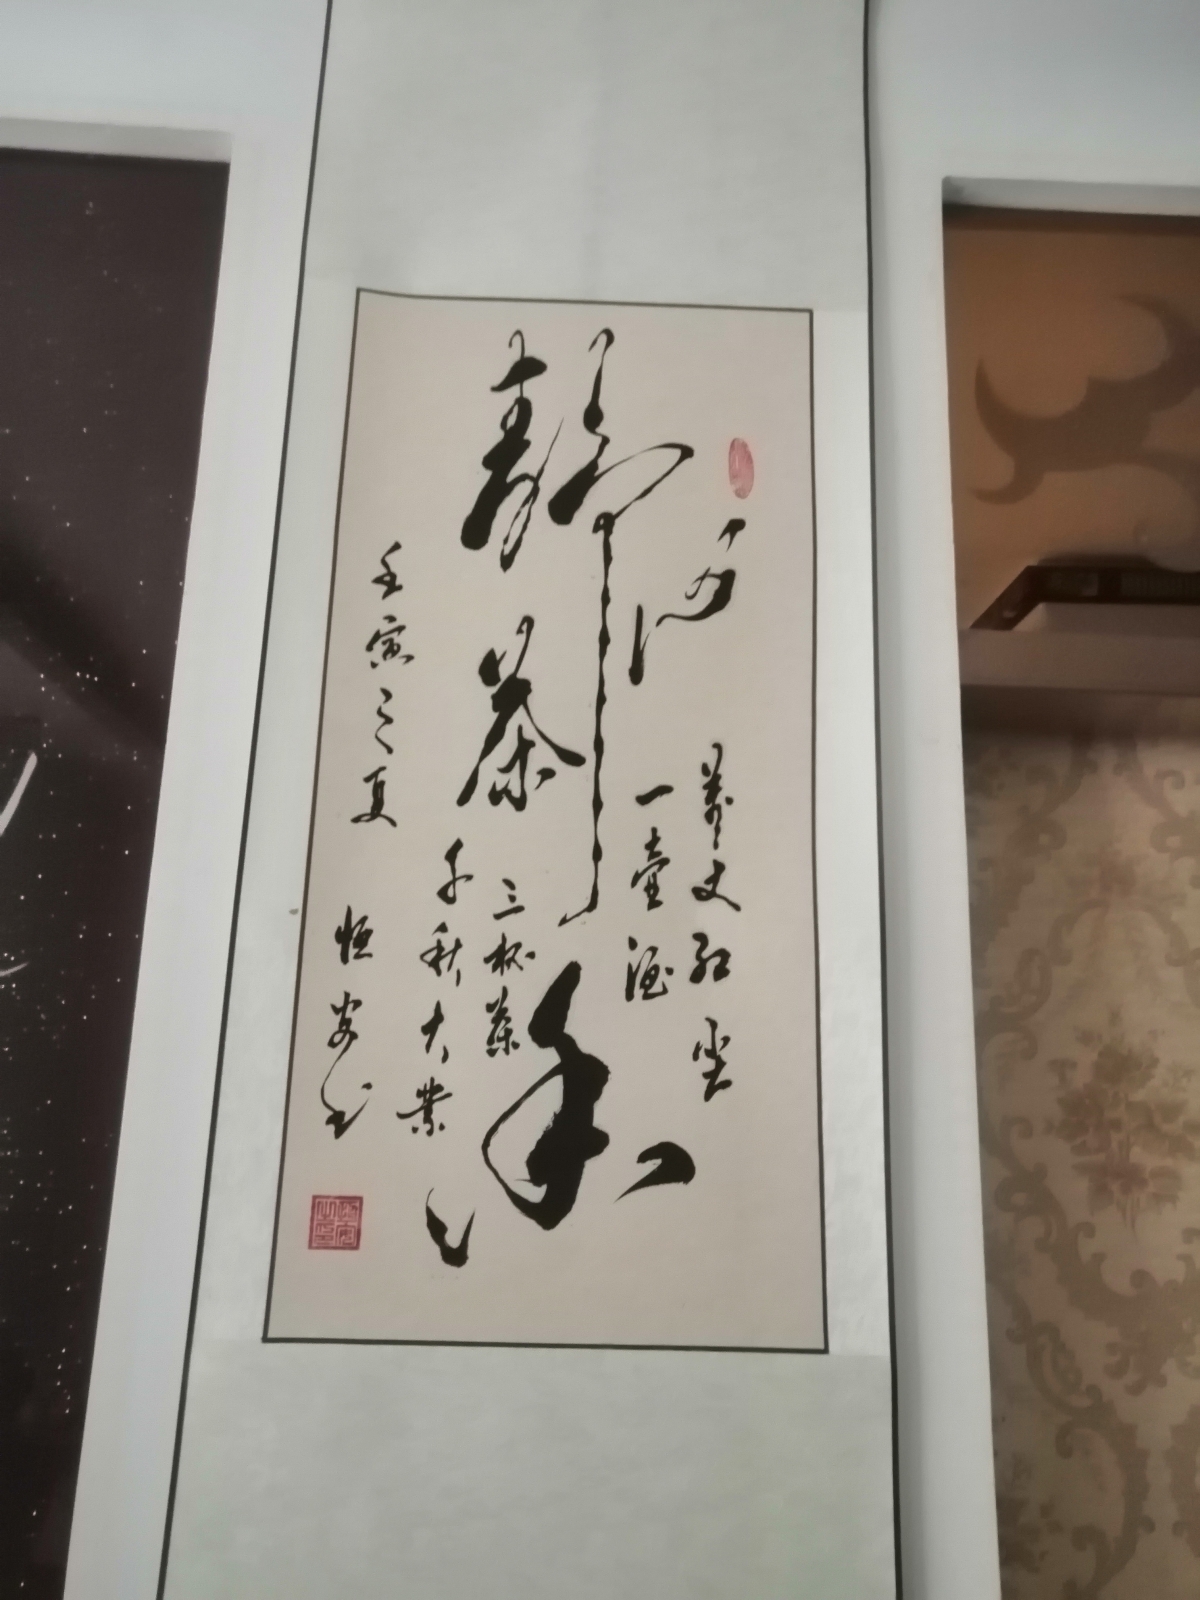 静茶香
万丈红尘
一壶酒
三杯茶
千秋大业
壬寅之夏
恒安书